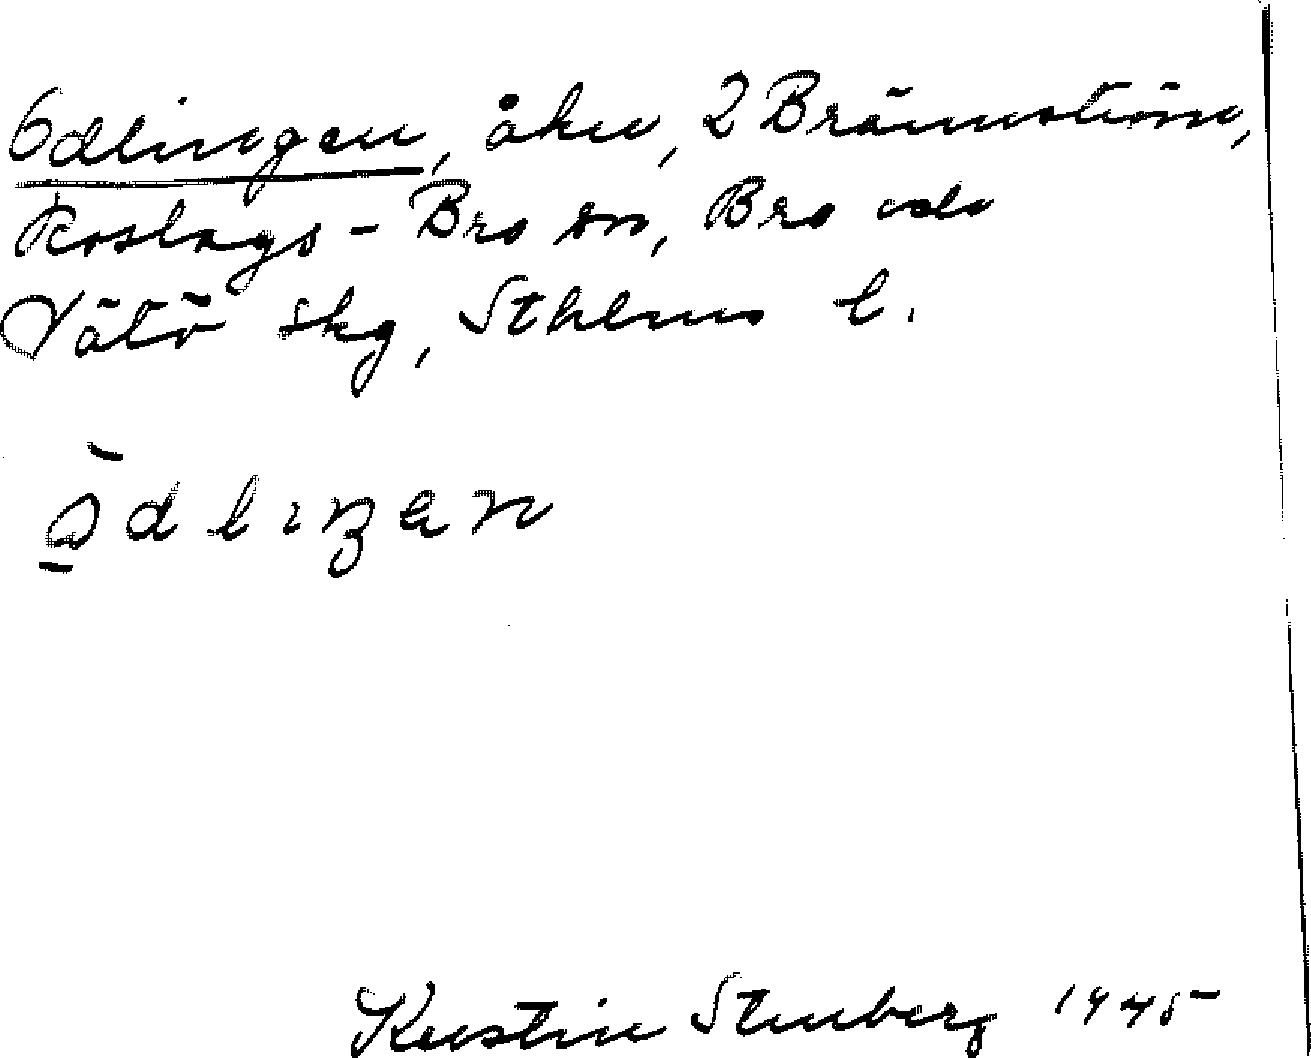 Odlingen, åker, 2 Brännström,
Roslags-Bro sn, Bro och
Vätö skg, Sthlms l.
ōdlıŋen
Kerstin Stenberg 1945